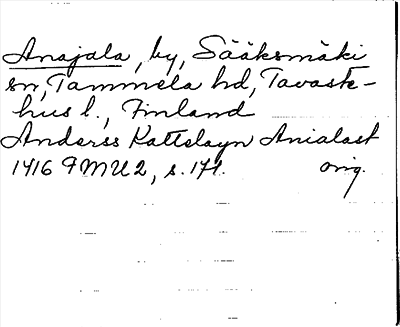 Anajala, by, Sääksmäki
sn, Tammela hd, Tavaste-
hus l., Finland
Anderss Kattelayn Anialast
1416 FMU 2, s. 171. orig.